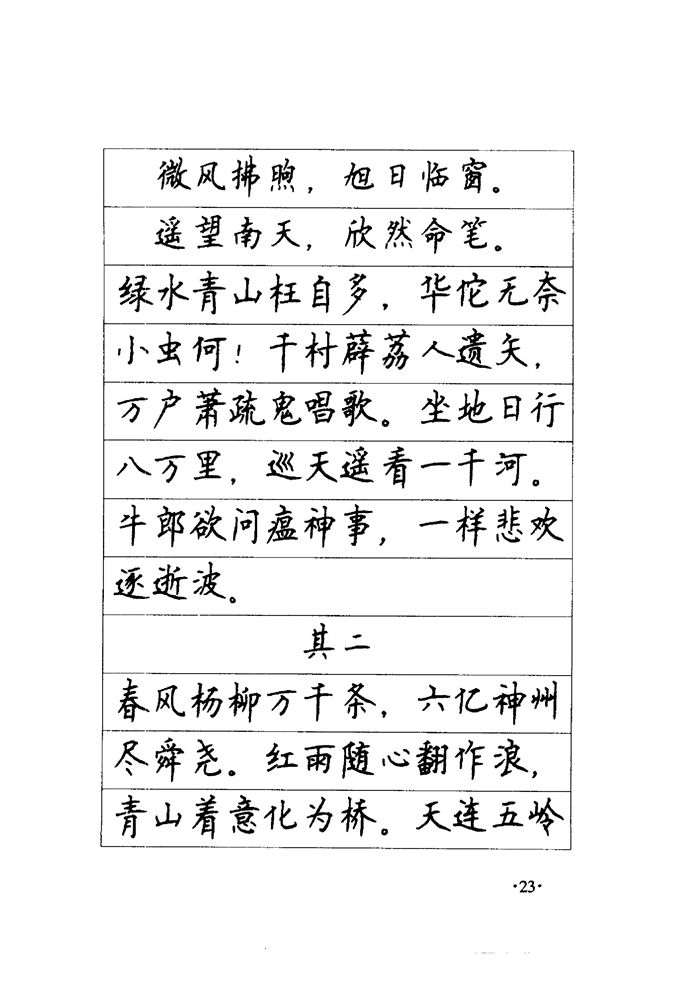 微风拂煦，旭日临窗。
遥望南天，欣然命笔。
绿水青山枉自多，华佗无奈
小虫何！千村薜荔人遗矢，
万户萧疏鬼唱歌。坐地日行
八万里，巡天遥看一千河。
牛郎欲问瘟神事，一样悲欢
逐逝波。
其二
春风杨柳万千条，六亿神州
尽舜尧。红雨随心翻作浪，
青山着意化为桥。天连五岭
·23·